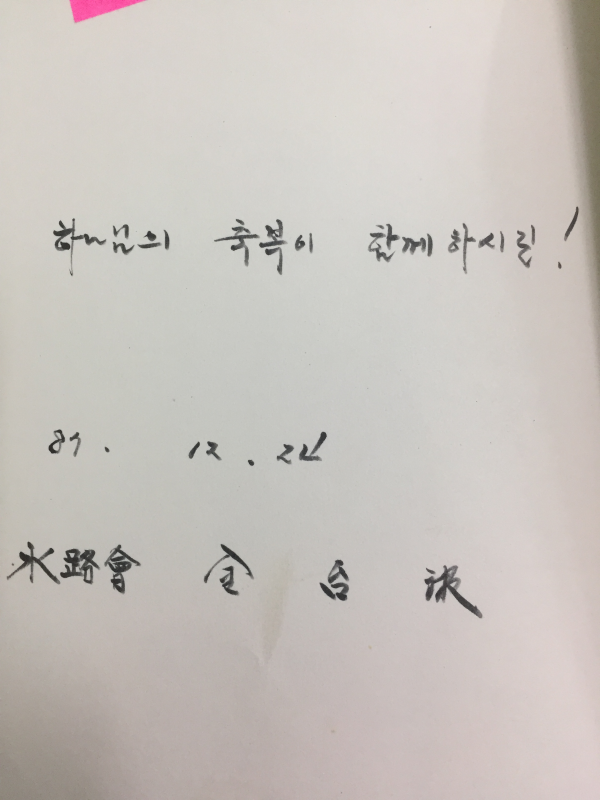 하나님의 축복이 함께 하시길!
87. 12. 22
水路會 金 台